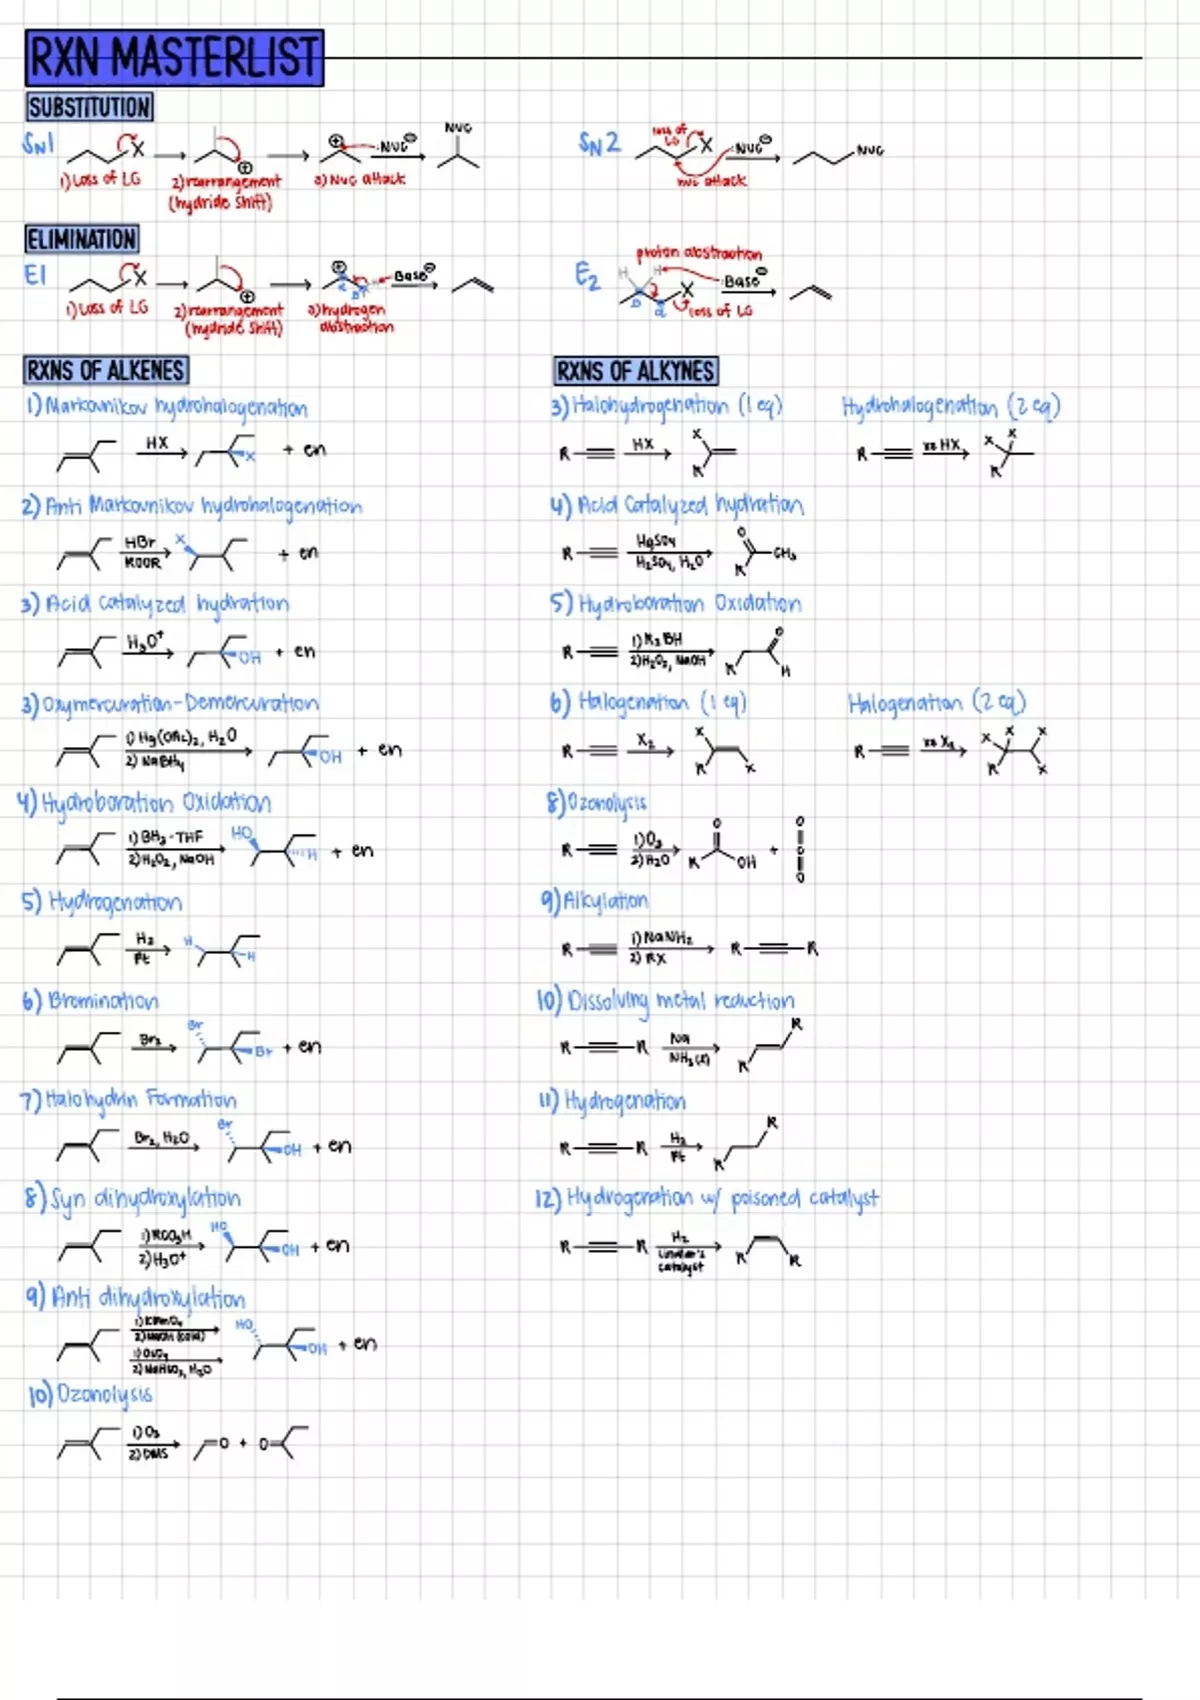 RXN MASTERLIST
SUBSTITUTION
SN1
X
1) Loss of LG
2) rearrangement
(hydride shift)
⊕
⊕
Nuc⊖
3) Nuc attack
NUC
SN2
loss of
LG
X
Nuc⊖
nuc attack
NUC
ELIMINATION
E1
X
1) Loss of LG
2) rearrangement
(hydride shift)
⊕
⊕
Base⊖
3) hydrogen
abstraction
E2
proton abstraction
H
H
X
Base⊖
loss of LG
RXNS OF ALKENES
1) Markovnikov hydrohalogenation
HX
X
+ en
2) Anti Markovnikov hydrohalogenation
HBr
ROOR
X
+ en
3) Acid Catalyzed hydration
H3O+
OH
+ en
3) Oxymercuration-Demercuration
1) Hg(OAc)2, H2O
2) NaBH4
OH
+ en
4) Hydroboration Oxidation
1) BH3·THF
2) H2O2, NaOH
HO
H
+ en
5) Hydrogenation
H2
Pt
H
H
6) Bromination
Br2
Br
Br
+ en
7) Halohydrin Formation
Br2, H2O
Br
OH
+ en
8) Syn dihydroxylation
1) RCO3H
2) H3O+
HO
OH
+ en
9) Anti dihydroxylation
1) KMnO4
2) NaOH (cold)
1) OsO4
2) NaHSO3, H2O
HO
OH
+ en
10) Ozonolysis
1) O3
2) DMS
O + O
RXNS OF ALKYNES
3) Halohydrogenation (1 eq)
R
HX
X
R
Hydrohalogenation (2 eq)
R
xs HX
X
X
R
4) Acid Catalyzed hydration
R
HgSO4
H2SO4, H2O
O
CH3
R
5) Hydroboration Oxidation
R
1) R2BH
2) H2O2, NaOH
O
R
H
6) Halogenation (1 eq)
R
X2
X
R
X
Halogenation (2 eq)
R
xs X2
X
X
X
R
X
8) Ozonolysis
R
1) O3
2) H2O
O
R
OH
+
O
O
9) Alkylation
R
1) NaNH2
2) RX
R
R
10) Dissolving metal reduction
R
R
Na
NH3 (l)
R
R
11) Hydrogenation
R
R
H2
Pt
R
R
12) Hydrogenation w/ poisoned catalyst
R
R
H2
Lindlar's
catalyst
R
R